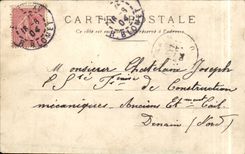 CARTE POSTALE
Ce côté est exclusivement réservé à l'adresse
Monsieur Chatelain Joseph
Sté Fse de Construction
mécaniques. Anciens Et. Cail
Denain (Nord)